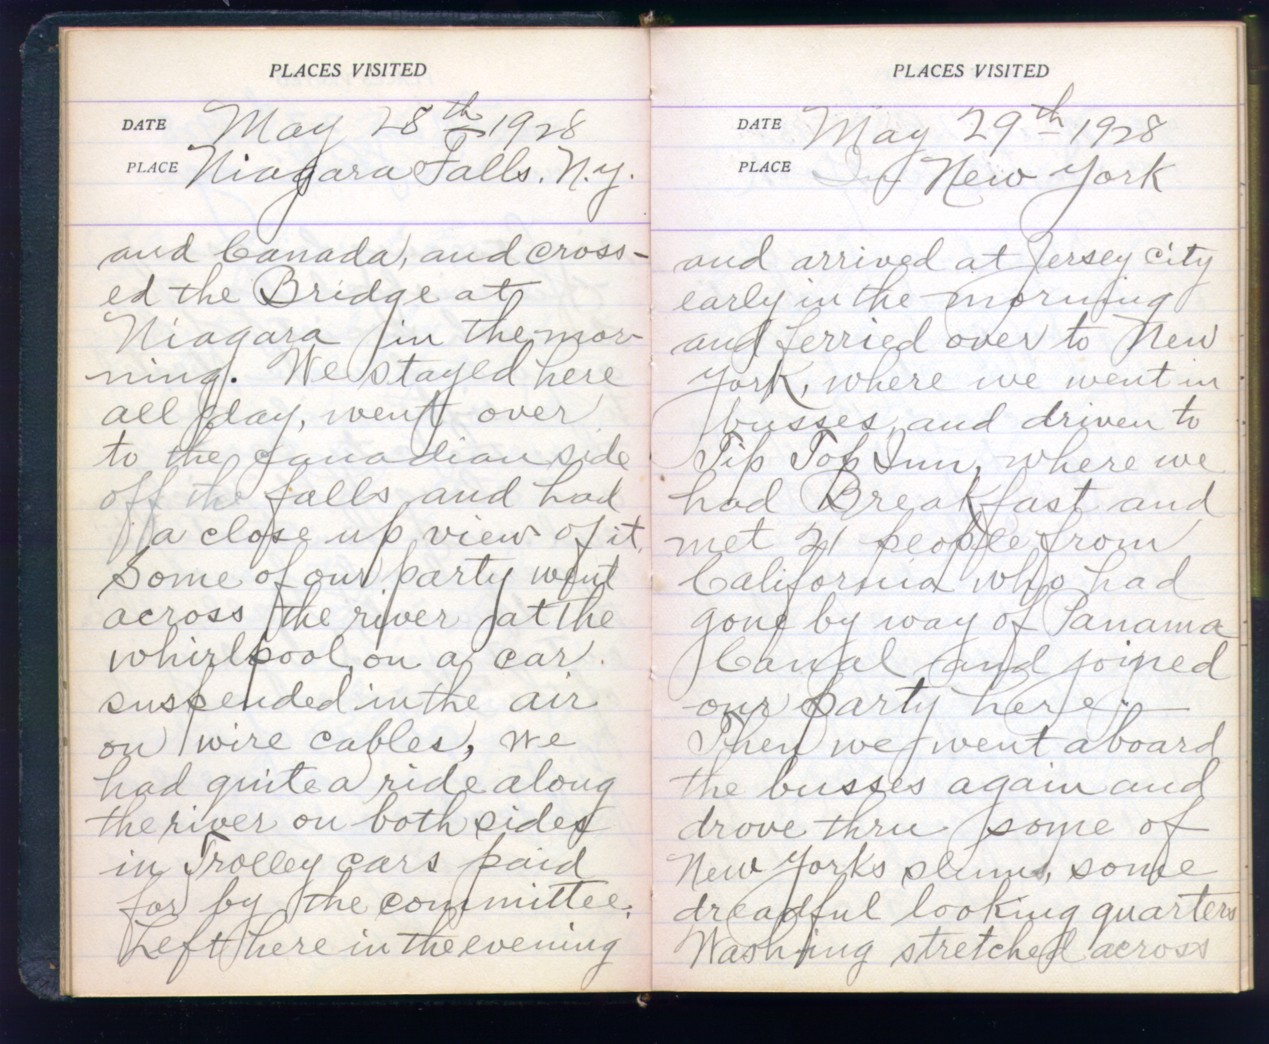 PLACES VISITED
DATE May 28th 1928
PLACE Niagara Falls. N.Y.
and Canada, and cross-
ed the Bridge at
Niagara in the mor-
ning. We stayed here
all day, went over
to the Canadian side
off the falls and had
a close up view of it.
Some of our party went
across the river at the
whirlpool on a car.
suspended in the air
on wire cables, We
had quite a ride along
the river on both sides
in Trolley cars paid
for by the committee.
Left here in the evening
PLACES VISITED
DATE May 29th 1928
PLACE In New York
and arrived at Jersey City
early in the morning
and ferried over to New
York, where we went in
busses, and driven to
Tip Top Inn, where we
had Breakfast and
met 21 people from
California who had
gone by way of Panama
Canal and joined
our party here.
Then we went aboard
the busses again and
drove thru some of
New Yorks slums, some
dreadful looking quarters
Washing stretched across